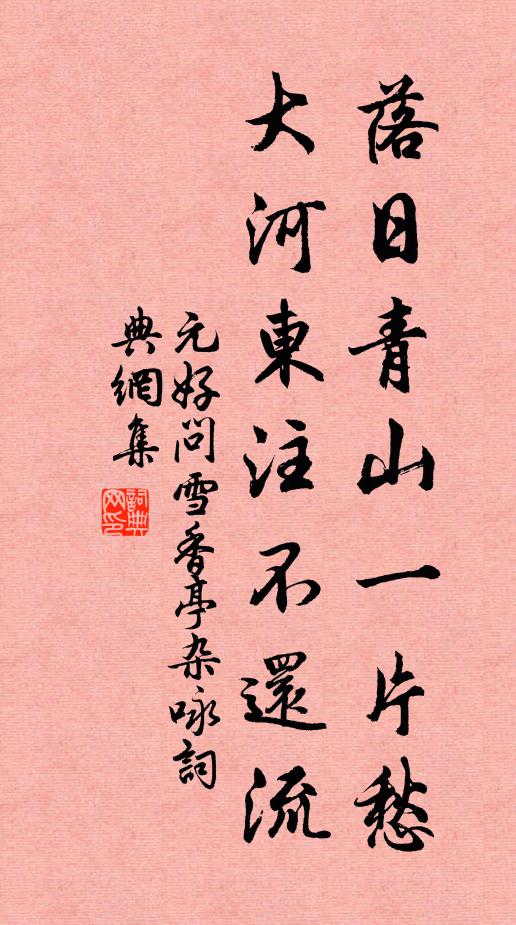 落日青山一片愁
大河東注不還流
元好問雪香亭杂咏詞
典網集
詞典網印